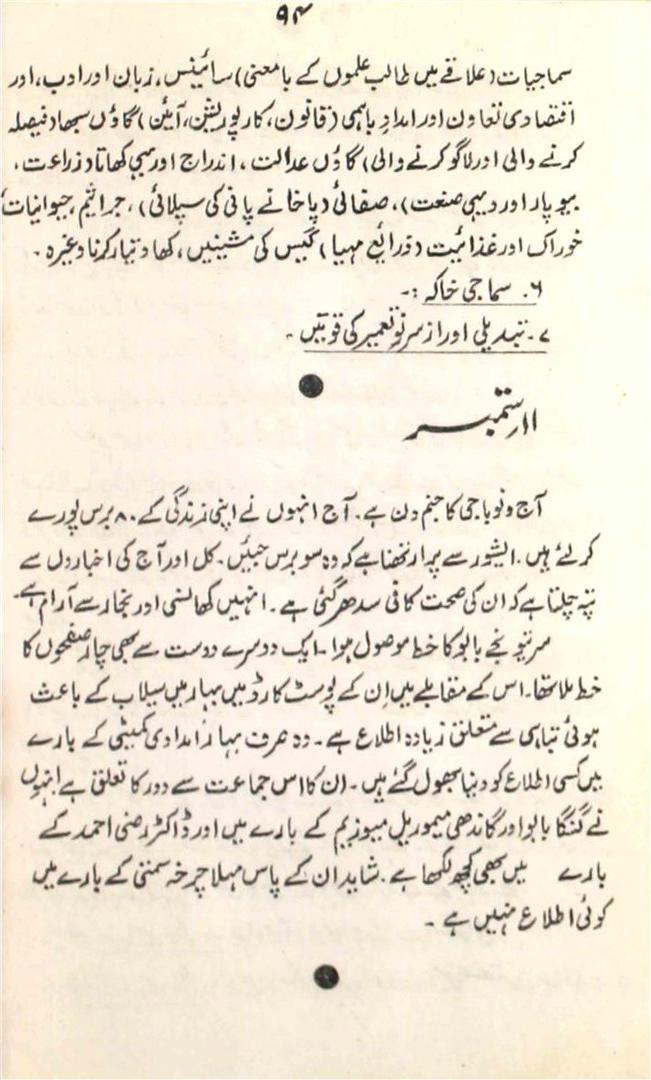 ۹۴
سماجیات (علاقے میں طالب علموں کے بامعنی) سائینس، زبان اور ادب، اور
اقتصادی تعاون اور امدادِ باہمی (قانون، کارپوریشن، آئین) گاؤں سبھا (فیصلہ
کرنے والی اور لاگو کرنے والی) گاؤں عدالت، اندراج اور بہی کھاتا (زراعت،
بیوپار اور دیہی صنعت)، صفائی (پاخانے پانی کی سپلائی)، جراثیم، حیوانیات،
خوراک اور غذائیت (ذرائع مہیا) گیس کی مشینیں، کھاد تیار کرنا وغیرہ۔
۶۔ سماجی خاکہ :۔
۷۔ تبدیلی اور از سرِ نو تعمیر کی قوتیں ۔
۱۱ر ستمبر
آج ونوباجی کا جنم دن ہے۔ آج انہوں نے اپنی زندگی کے ۸۰ برس پورے
کر لئے ہیں۔ ایشور سے پرارتھنا ہے کہ وہ سو برس جئیں۔ کل اور آج کی اخباروں سے
پتہ چلتا ہے کہ ان کی صحت کافی سدھر گئی ہے۔ انہیں کھانسی اور بخار سے آرام ہے۔
سرتیو نجے بابو کا خط موصول ہوا۔ ایک دوسرے دوست سے بھی چار صفحوں کا
خط ملا تھا۔ اس کے مقابلے میں اِن کے پوسٹ کارڈ میں بہار میں سیلاب کے باعث
ہوئی تباہی سے متعلق زیادہ اطلاع ہے۔ وہ صرف بہار امدادی کمیٹی کے بارے
میں کسی اطلاع کو دنیا بھول گئے ہیں۔ ان کا اس جماعت سے دور کا تعلق ہے انہوں
نے گنگا بابو اور گاندھی میموریل میوزیم کے بارے میں اور ڈاکٹر رضی احمد کے
بارے میں بھی کچھ لکھا ہے۔ شاید ان کے پاس مہلا چرخہ سمتی کے بارے میں
کوئی اطلاع نہیں ہے ۔